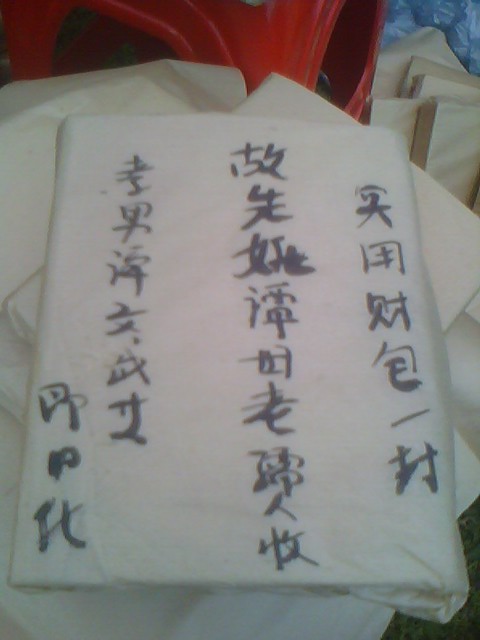 实用财包一封
故先妣谭母老孺人收
孝男谭文、武
即日化